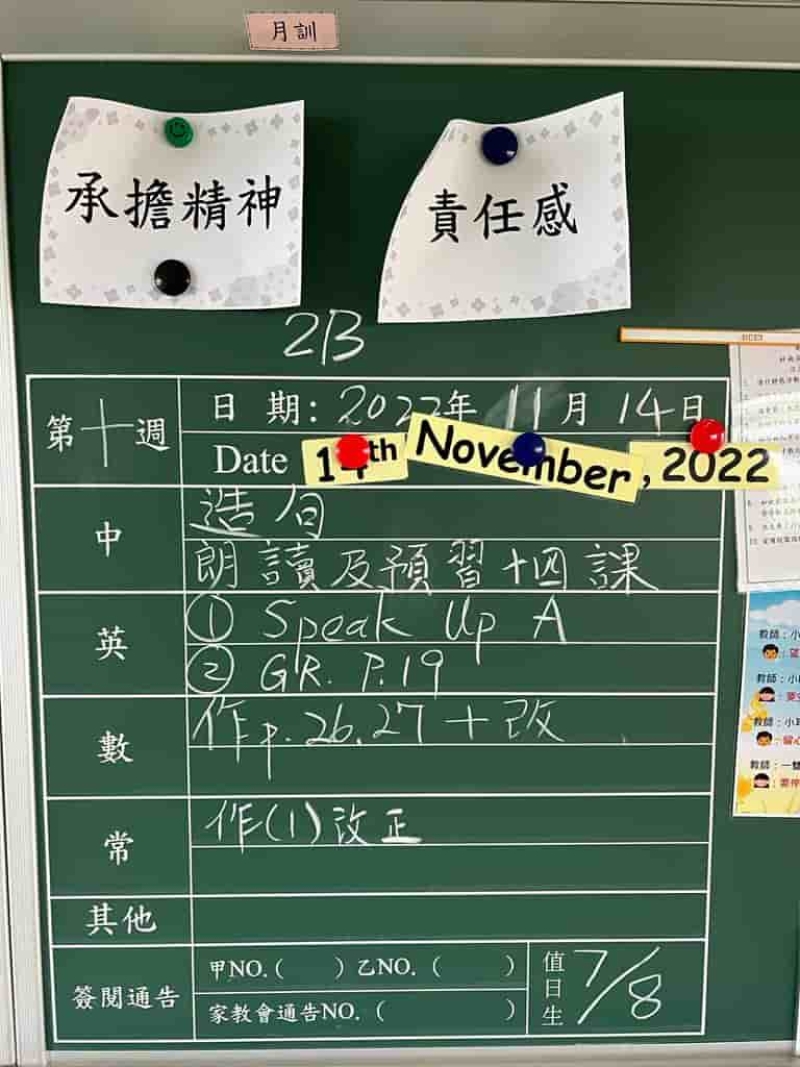 月訓
承擔精神
責任感
2B
第十週
日期：2022年11月14日
Date 14th November, 2022
中
造句
朗讀及預習十四課
英
① Speak Up A
② GR. P.19
數
作p.26.27＋改
常
作(1)改正
其他
簽閱通告
甲NO.(    )乙NO.(    )
家教會通告NO.(    )
值日生
7/8
教師：小
教師：小
教師：小
教師：一